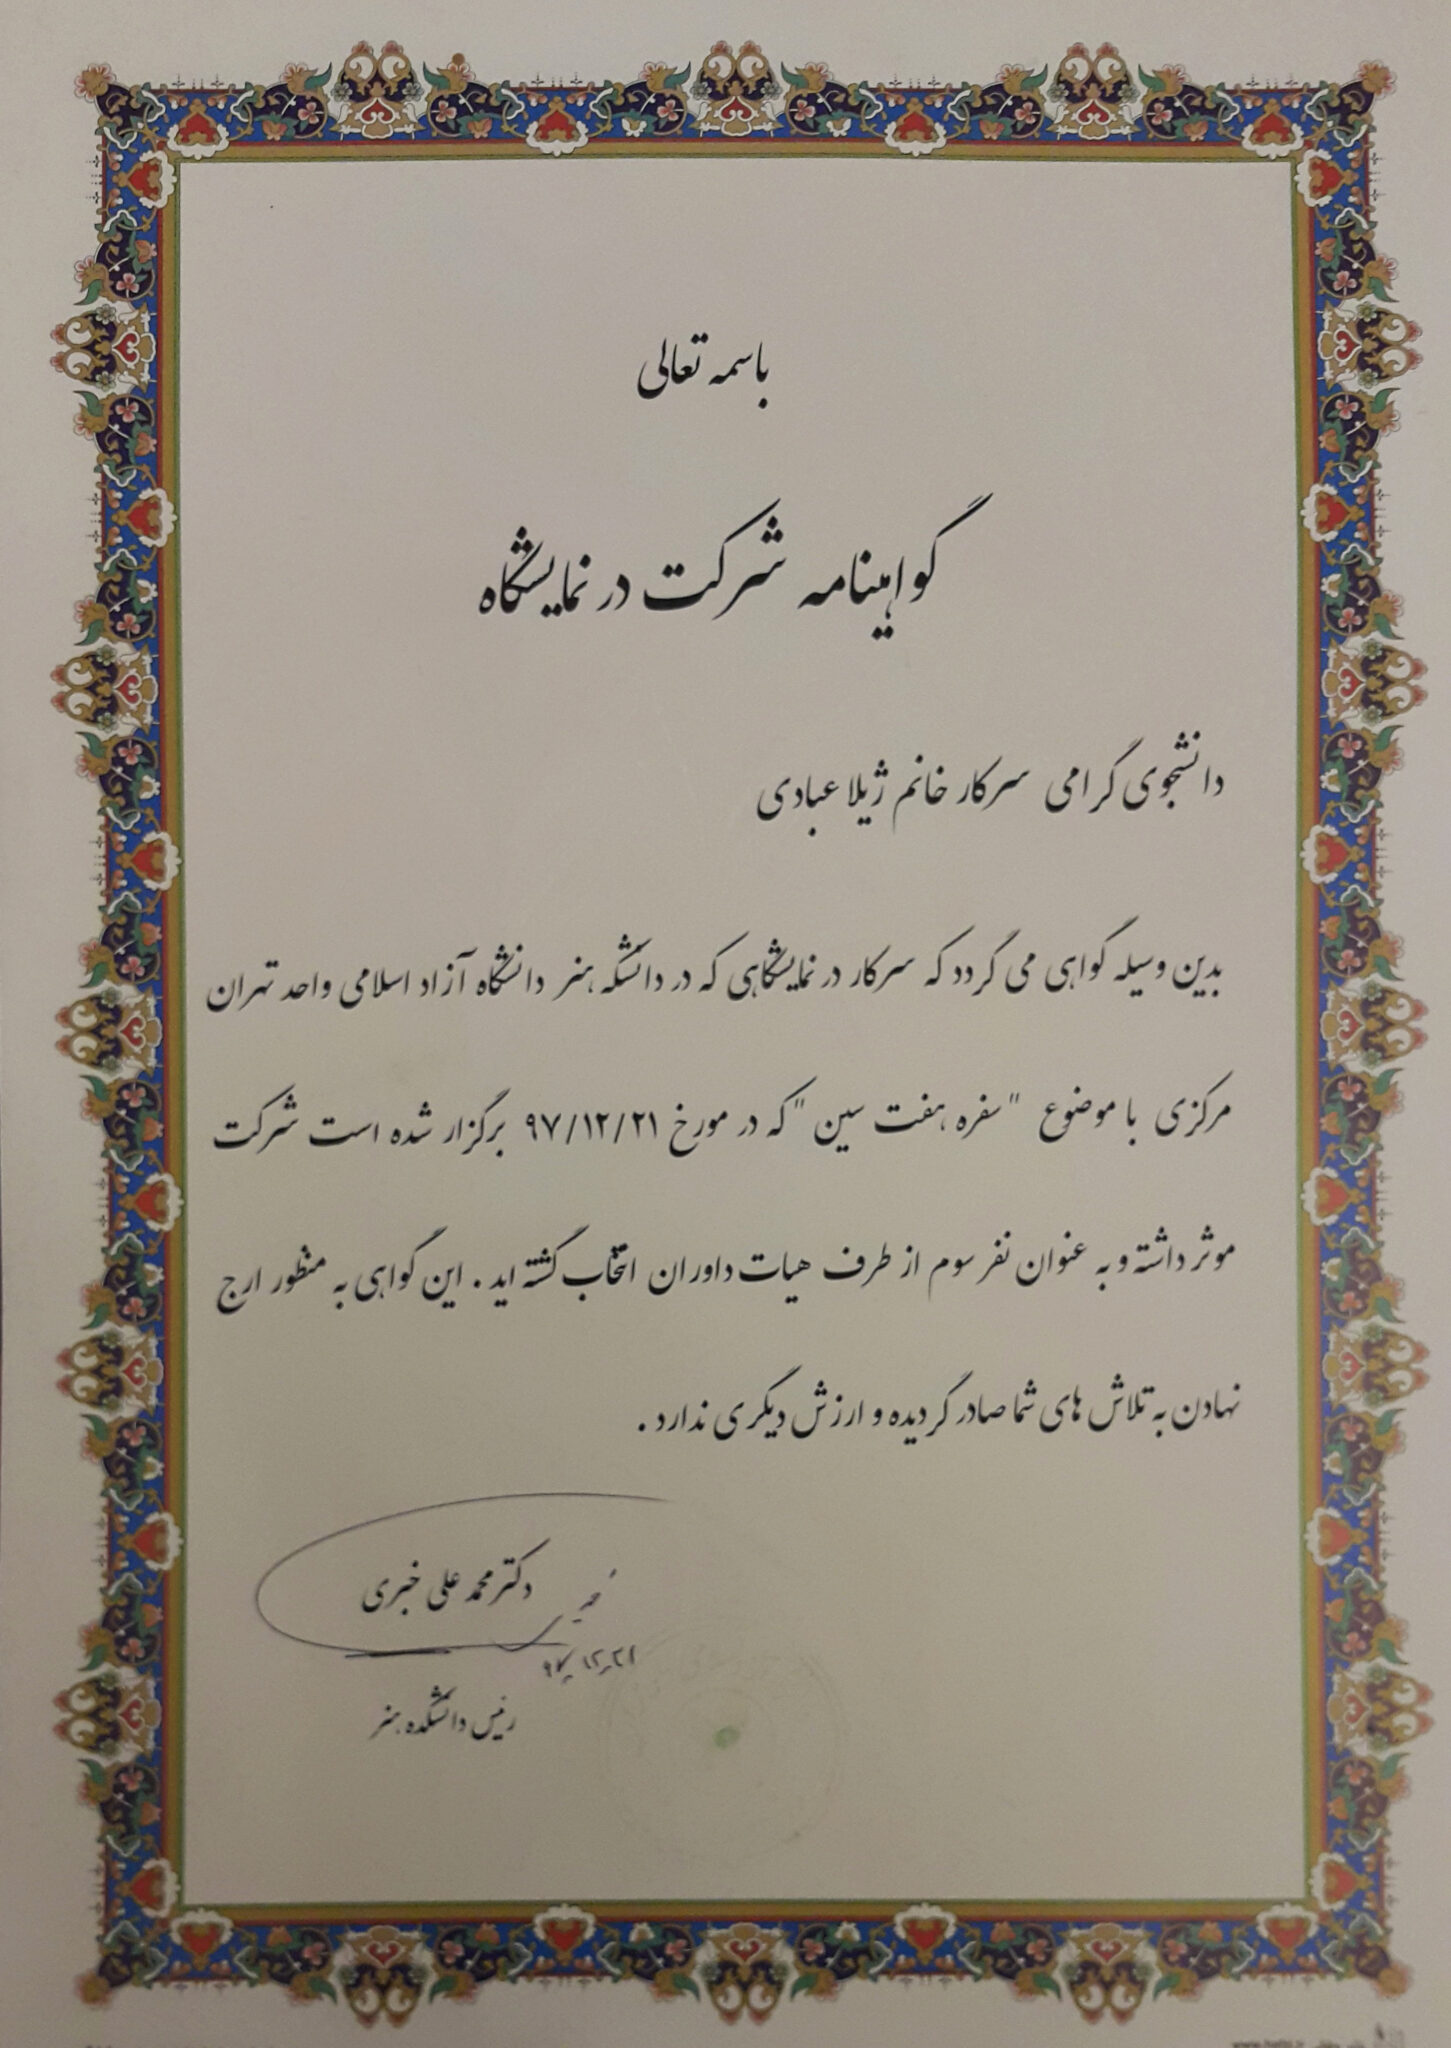 باسمه تعالی
گواهینامه شرکت در نمایشگاه
دانشجوی گرامی سرکار خانم ژیلا عبادی
بدین وسیله گواهی می گردد که سرکار در نمایشگاهی که در دانشکه هنر دانشگاه آزاد اسلامی واحد تهران
مرکزی با موضوع "سفره هفت سین" که در مورخ ۹۷/۱۲/۲۱ برگزار شده است شرکت
موثر داشته و به عنوان نفر سوم از طرف هیات داوران انتخاب گشته اید . این گواهی به منظور ارج
نهادن به تلاش های شما صادر گردیده و ارزش دیگری ندارد .
دکتر محمد علی خبری
۹۷/۱۲/۲۱
رئیس دانشکده هنر